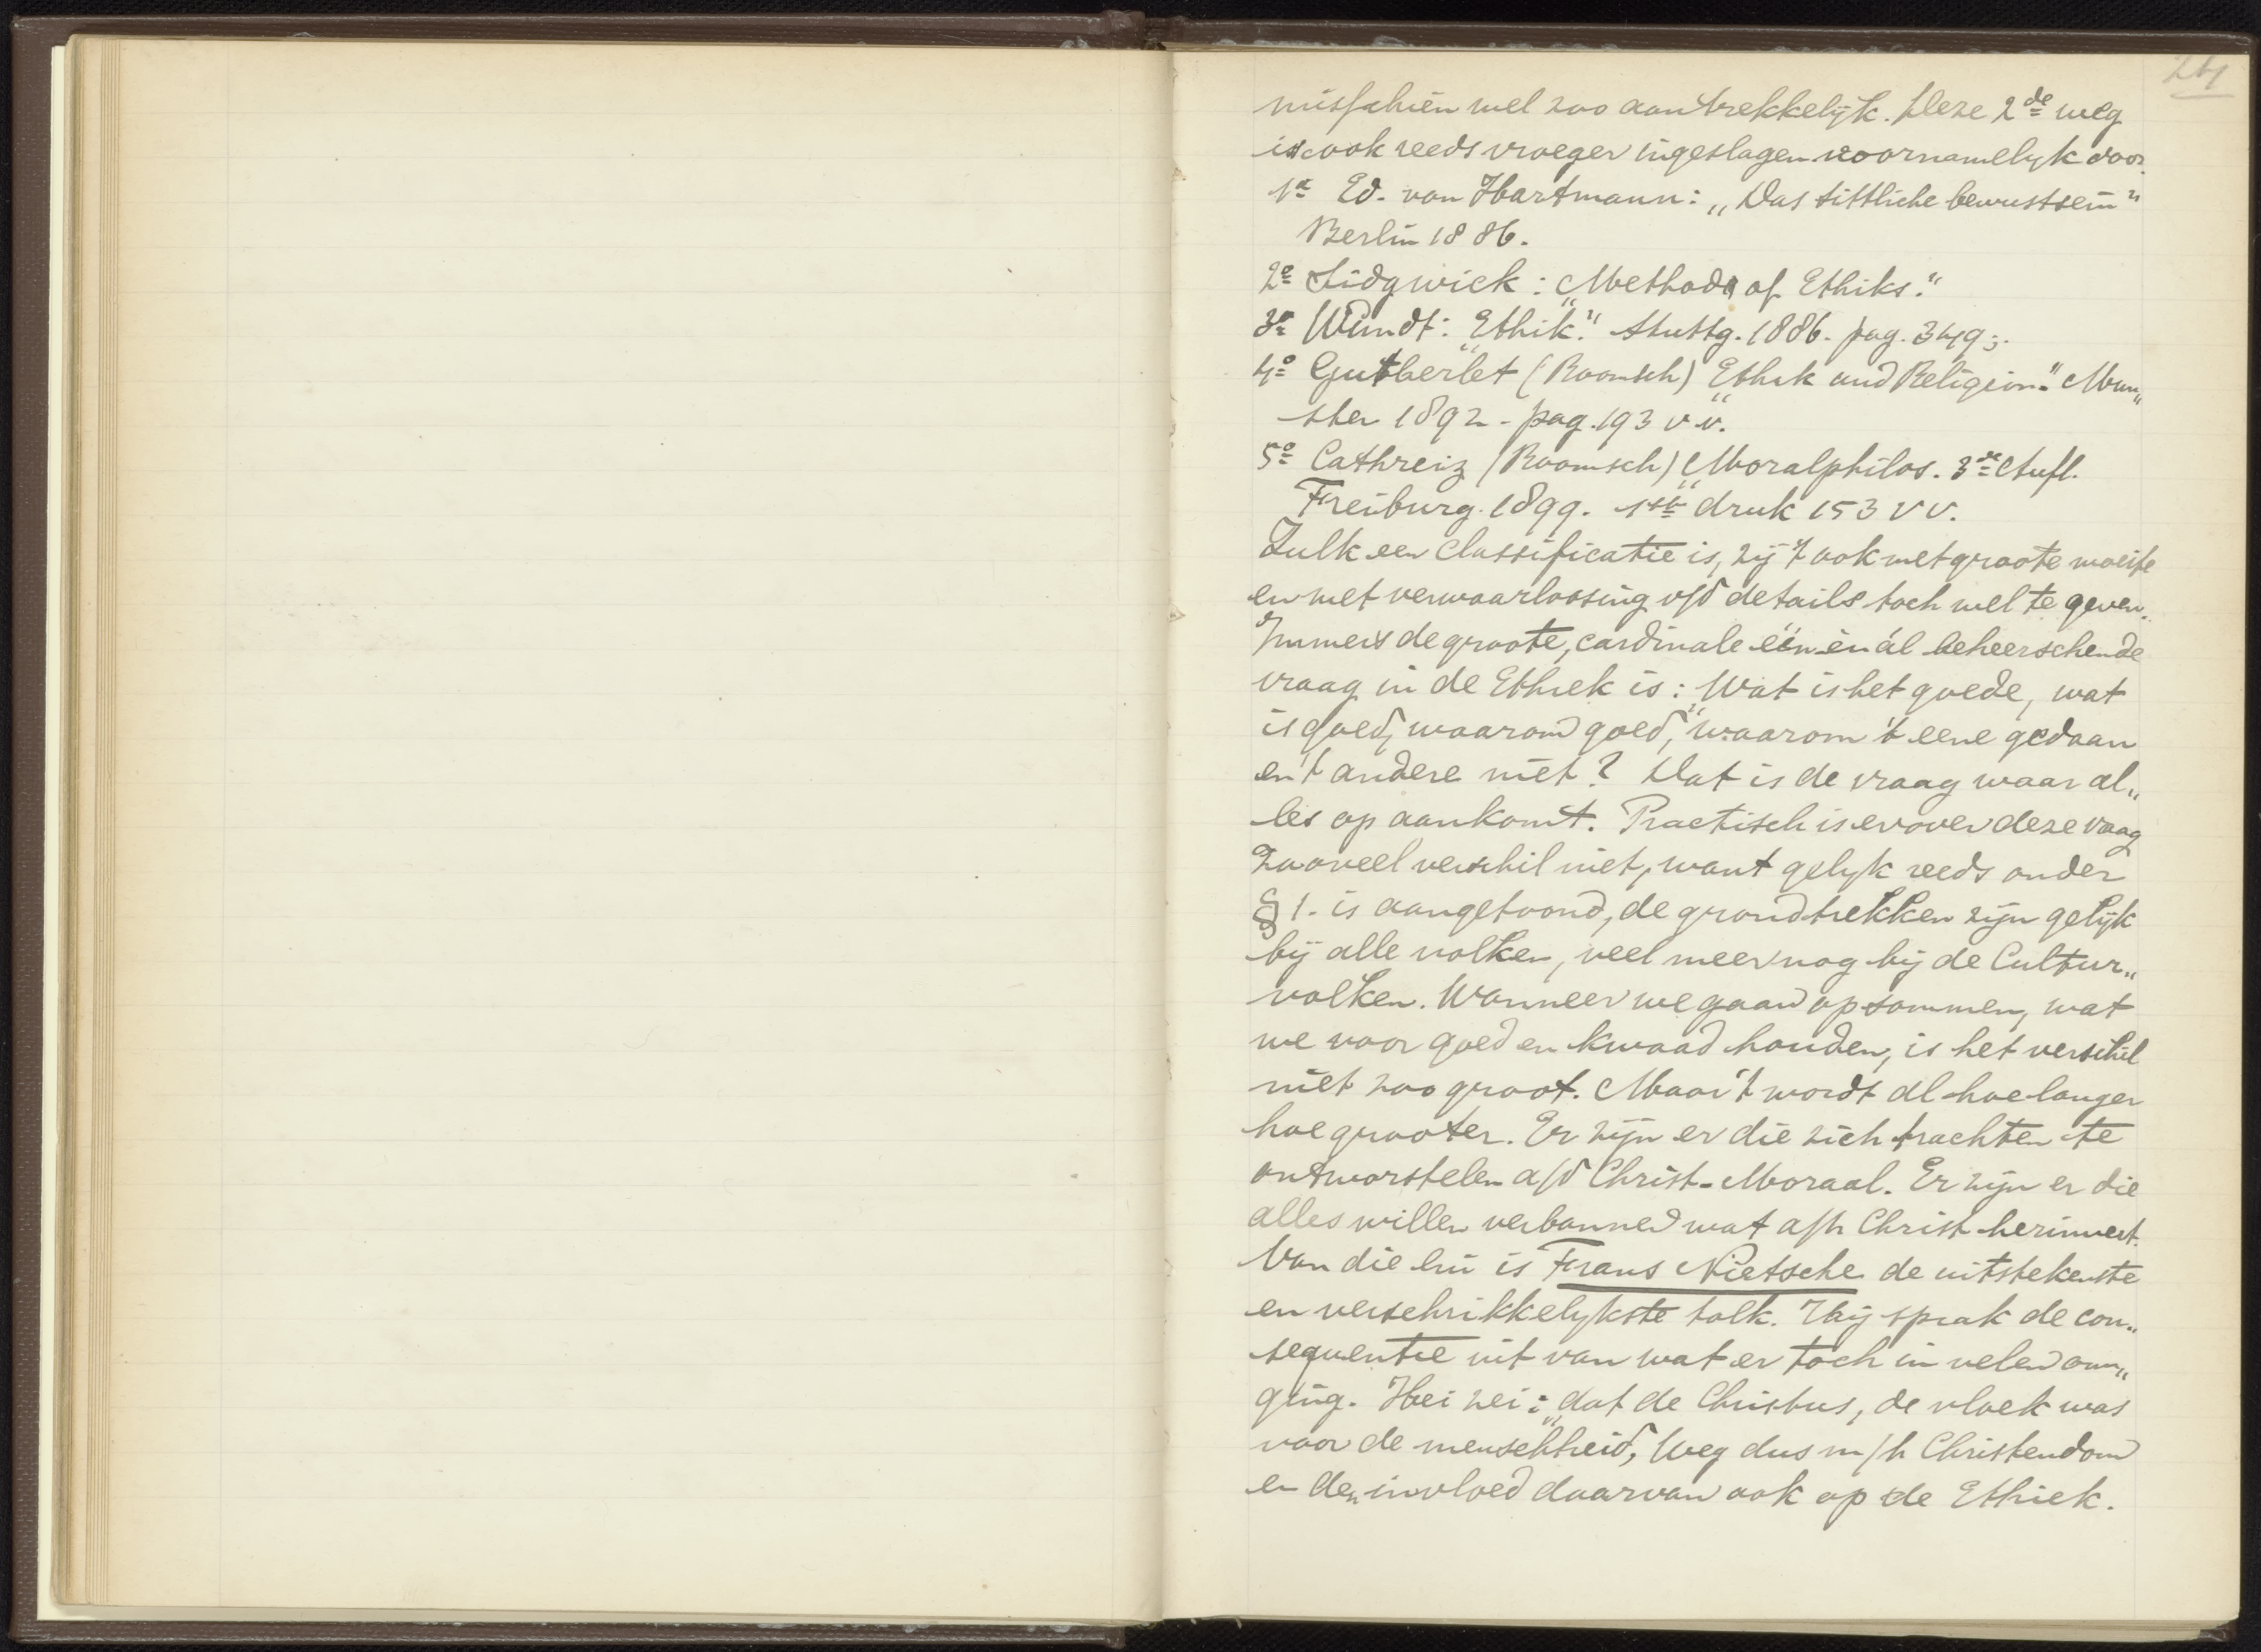 misschien wel zoo aantrekkelijk. Deze 2de weg
is ook reeds vroeger ingeslagen voornamelijk door.
1o Ed. von Hartmann: „Das sittliche bewustsein"
Berlin 1886.
2o Sidgwick: „Methods of Ethiks."
3o Wundt: „Ethik." Stuttg. 1886. pag. 349;.
4o Gutberlet (Roomsch) „Ethik und Religion." Mun„
ster 1892 - pag. 193 v.v.
5o Cathrein (Roomsch) „Moralphilos. 3de Aufl.
Freiburg. 1899. 1ste druk 153 v v.
Zulk een classificatie is, zij 't ook met groote moeite
en met verwaarloosing v/d details toch wel te geven.
Immers de groote, cardinale één en ál beheerschende
vraag in de Ethiek is: Wat is het goede, wat
is goed, waarom goed, „waarom 't eene gedaan
en 't andere niet? Dat is de vraag waar al„
les op aankomt. Practisch is er over deze vraag
zooveel verschil niet, want gelijk reeds onder
§ 1. is aangetoond, de grondtrekken zijn gelijk
bij alle volken, veel meer nog bij de Cultur„
volken. Wanneer we gaan opsommen, wat
we voor goed en kwaad houden, is het verschil
niet zoo groot. Maar 't wordt al hoe langer
hoe grooter. Er zijn er die zich trachten te
ontworstelen a/d Christ. Moraal. Er zijn er die
alles willen verbannen wat a/h Christ. herinnert.
Van die lui is Frans Nietsche de uitstekenste
en verschrikkelijkste tolk. Hij sprak de con„
sequentie uit van wat er toch in velen om„
ging. Hei zei: „dat de Christus, de vloek was
voor de menschheid, Weg dus m/h Christendom
en den invloed daarvan ook op de Ethiek.